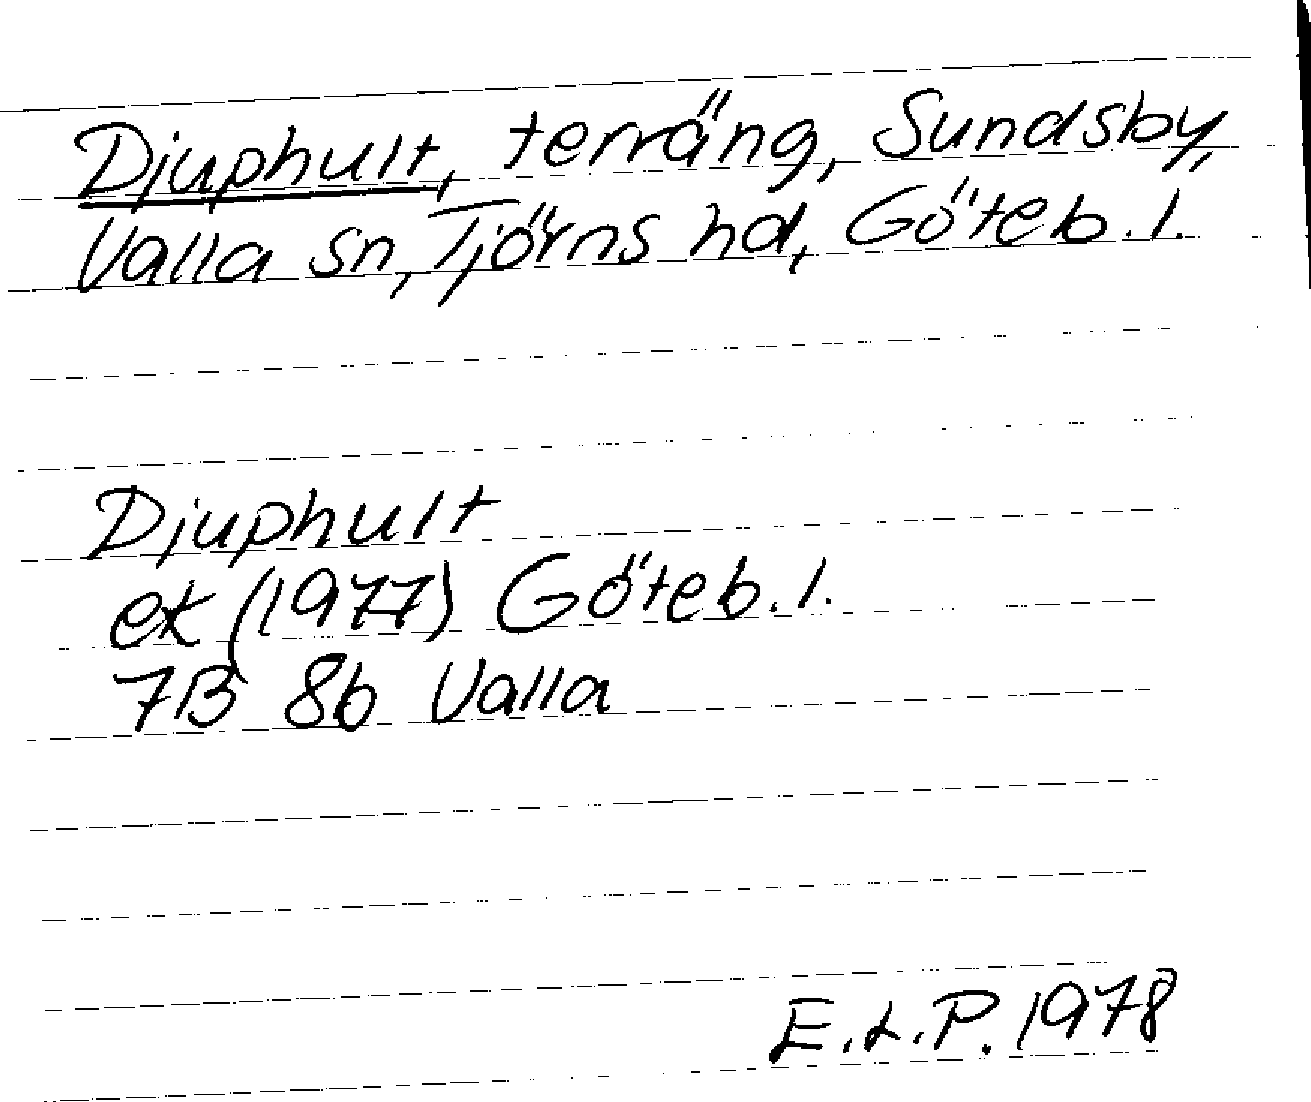 Djuphult, terräng, Sundsby,
Valla sn, Tjörns hd, Göteb. l.
Djuphult
ek (1977) Göteb. l.
7B 8b Valla
E.L.P. 1978